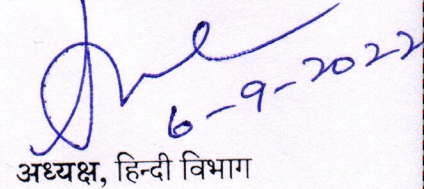 6-9-2022
अध्यक्ष, हिन्दी विभाग